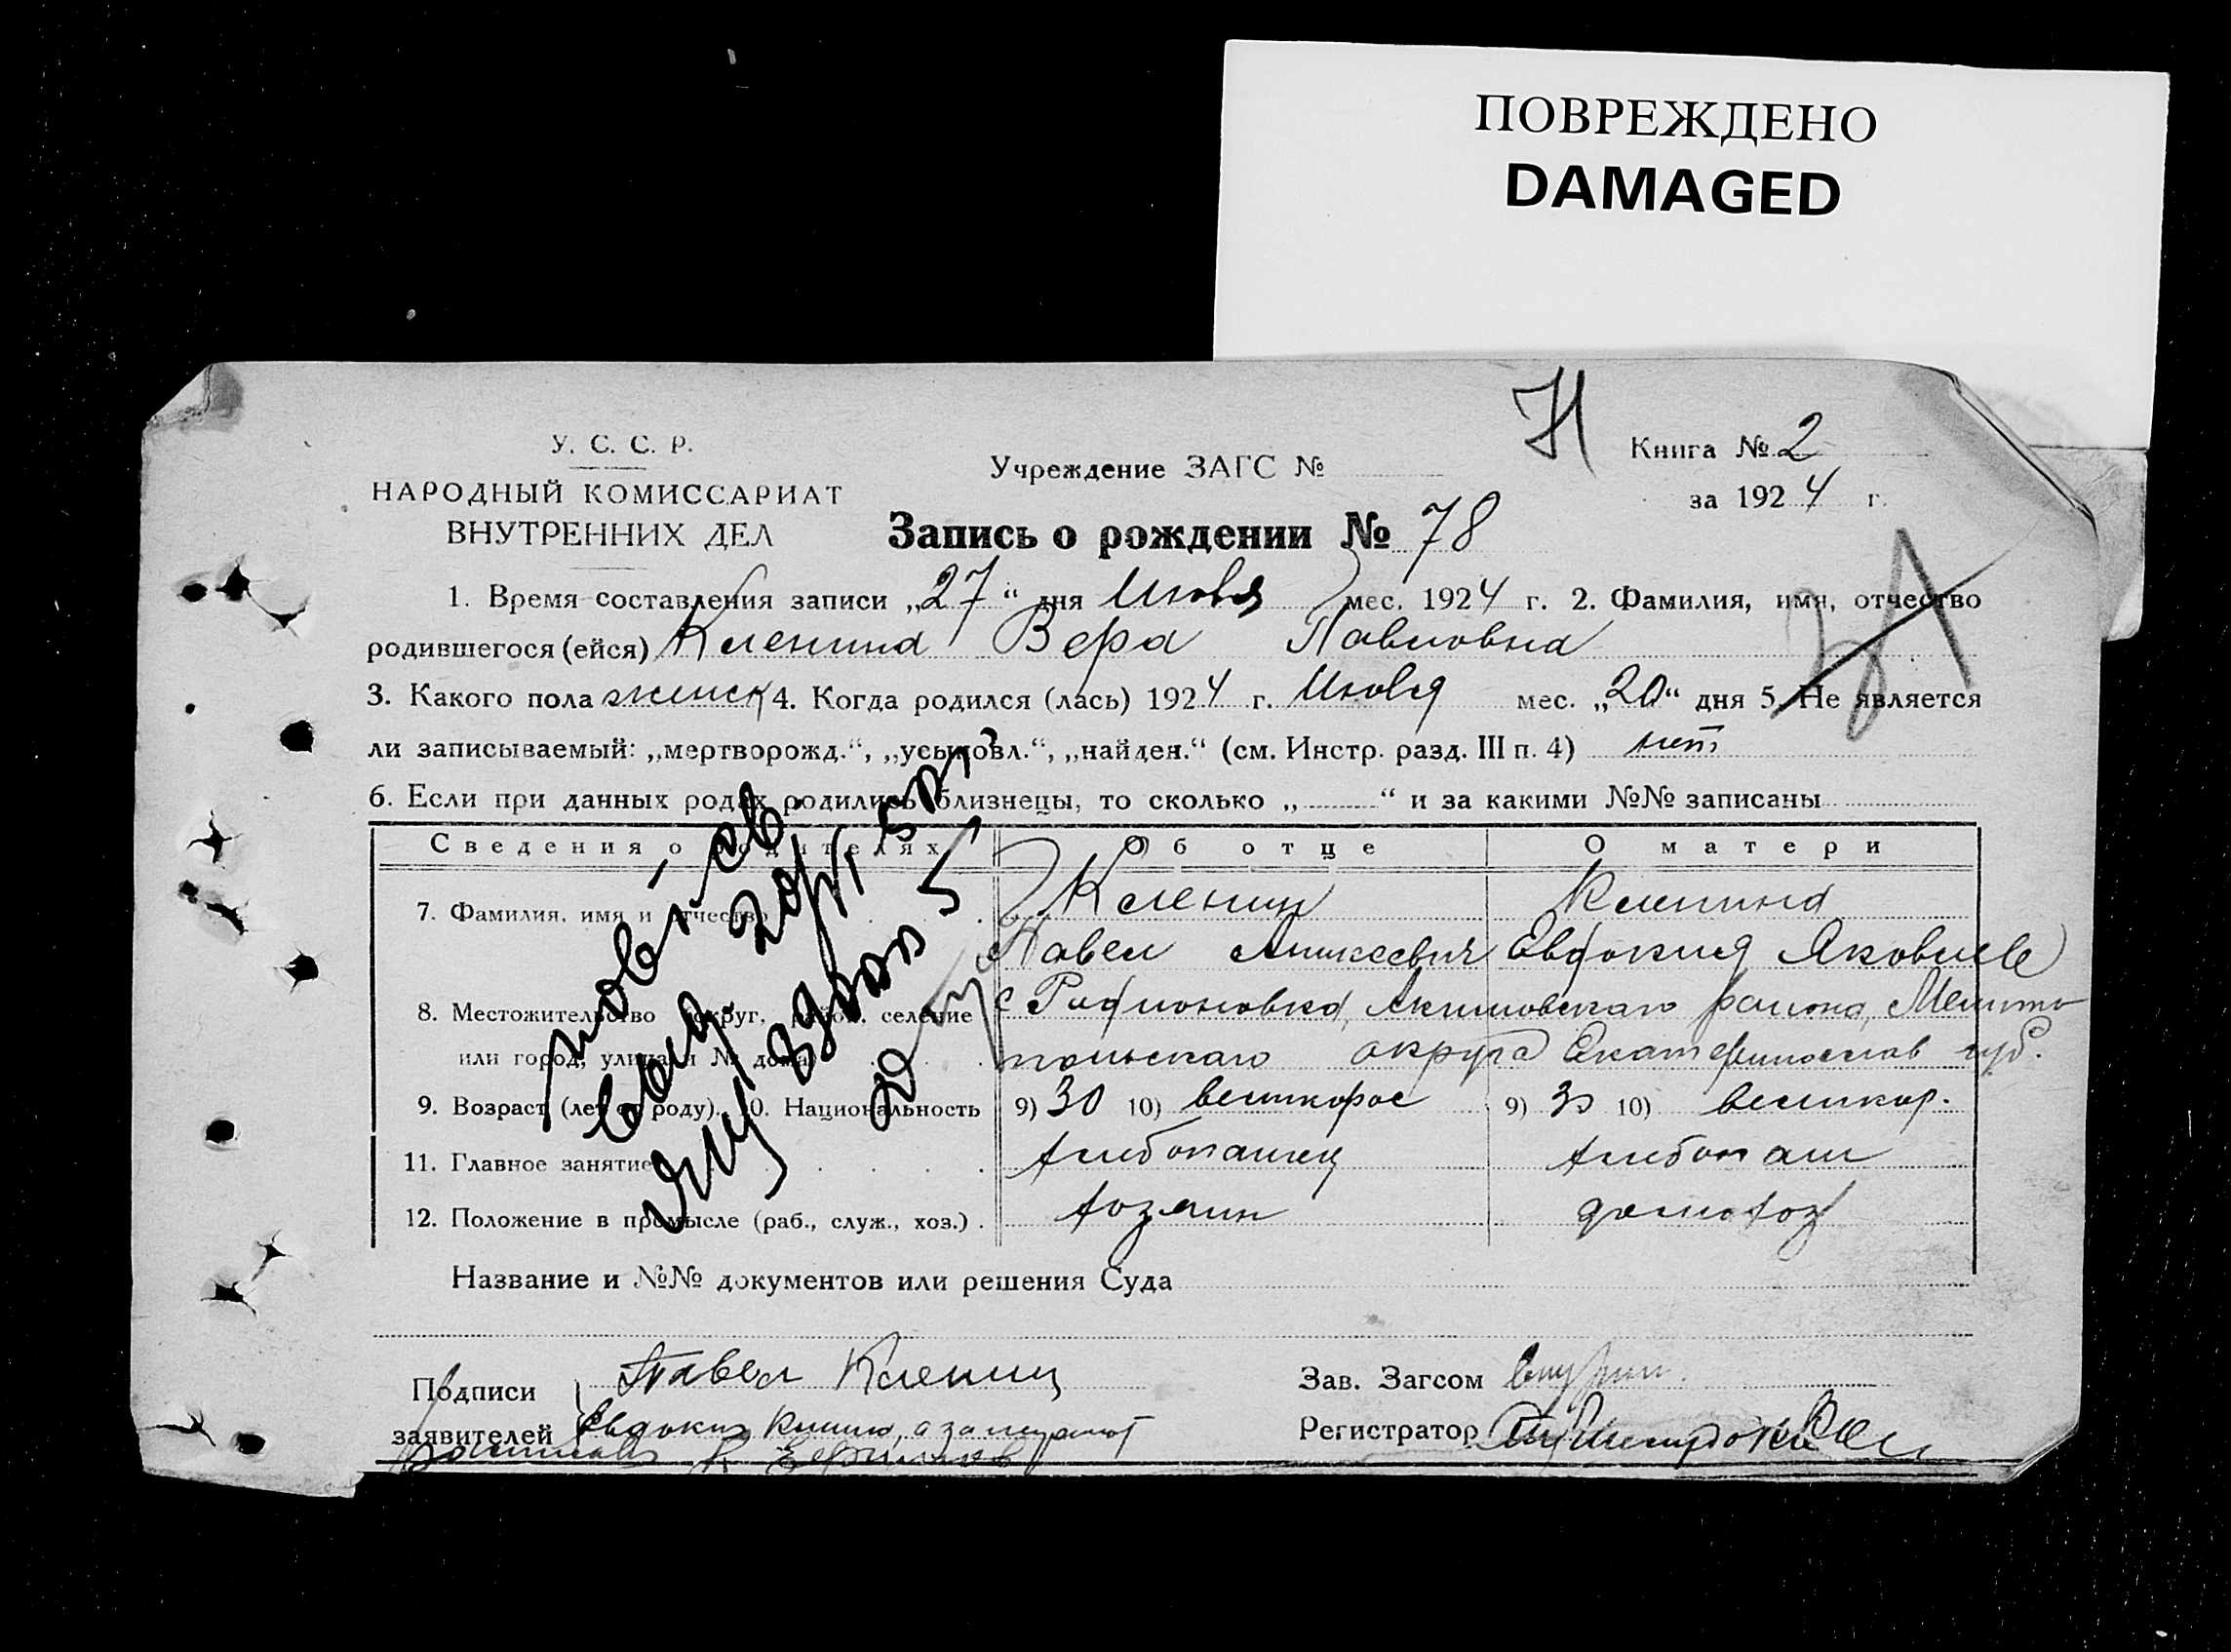 ПОВРЕЖДЕНО
DAMAGED
Н
У. С. С. Р.
НАРОДНЫЙ КОМИССАРИАТ
ВНУТРЕННИХ ДЕЛ
Учреждение ЗАГС №
Книга № 2
за 1924 г.
Запись о рождении № 78
1. Время составления записи „27“ дня Июля мес. 1924 г. 2. Фамилия, имя, отчество
родившегося (ейся) Кленина Вера Павловна
3. Какого пола женск 4. Когда родился (лась) 1924 г. Июля мес. „20“ дня 5. Не является
ли записываемый: „мертворожд.“, „усыновл.“, „найден.“ (см. Инстр. разд. III п. 4) нет
6. Если при данных родах родились близнецы, то сколько „ “ и за какими №№ записаны
Сведения о родителях Об отце О матери
7. Фамилия, имя и отчество Кленин Кленина
Павел Евдокия Яковлев
8. Местожительство (округ, район, селение с Родионовка, Акимовскаго района, Мелито
или город, улица и № дома) польскаго округа Екатеринослав губ.
9. Возраст (лет от роду). 10. Национальность 9) 30 10) великорос 9) 30 10) великор.
11. Главное занятие хлебопашец хлебопаш
12. Положение в промысле (раб., служ., хоз.) хозяин домохоз
Название и №№ документов или решения Суда
Подписи Павел Кленин
заявителей Евдокия Кленина, а за неграмот
Зав. Загсом
Регистратор